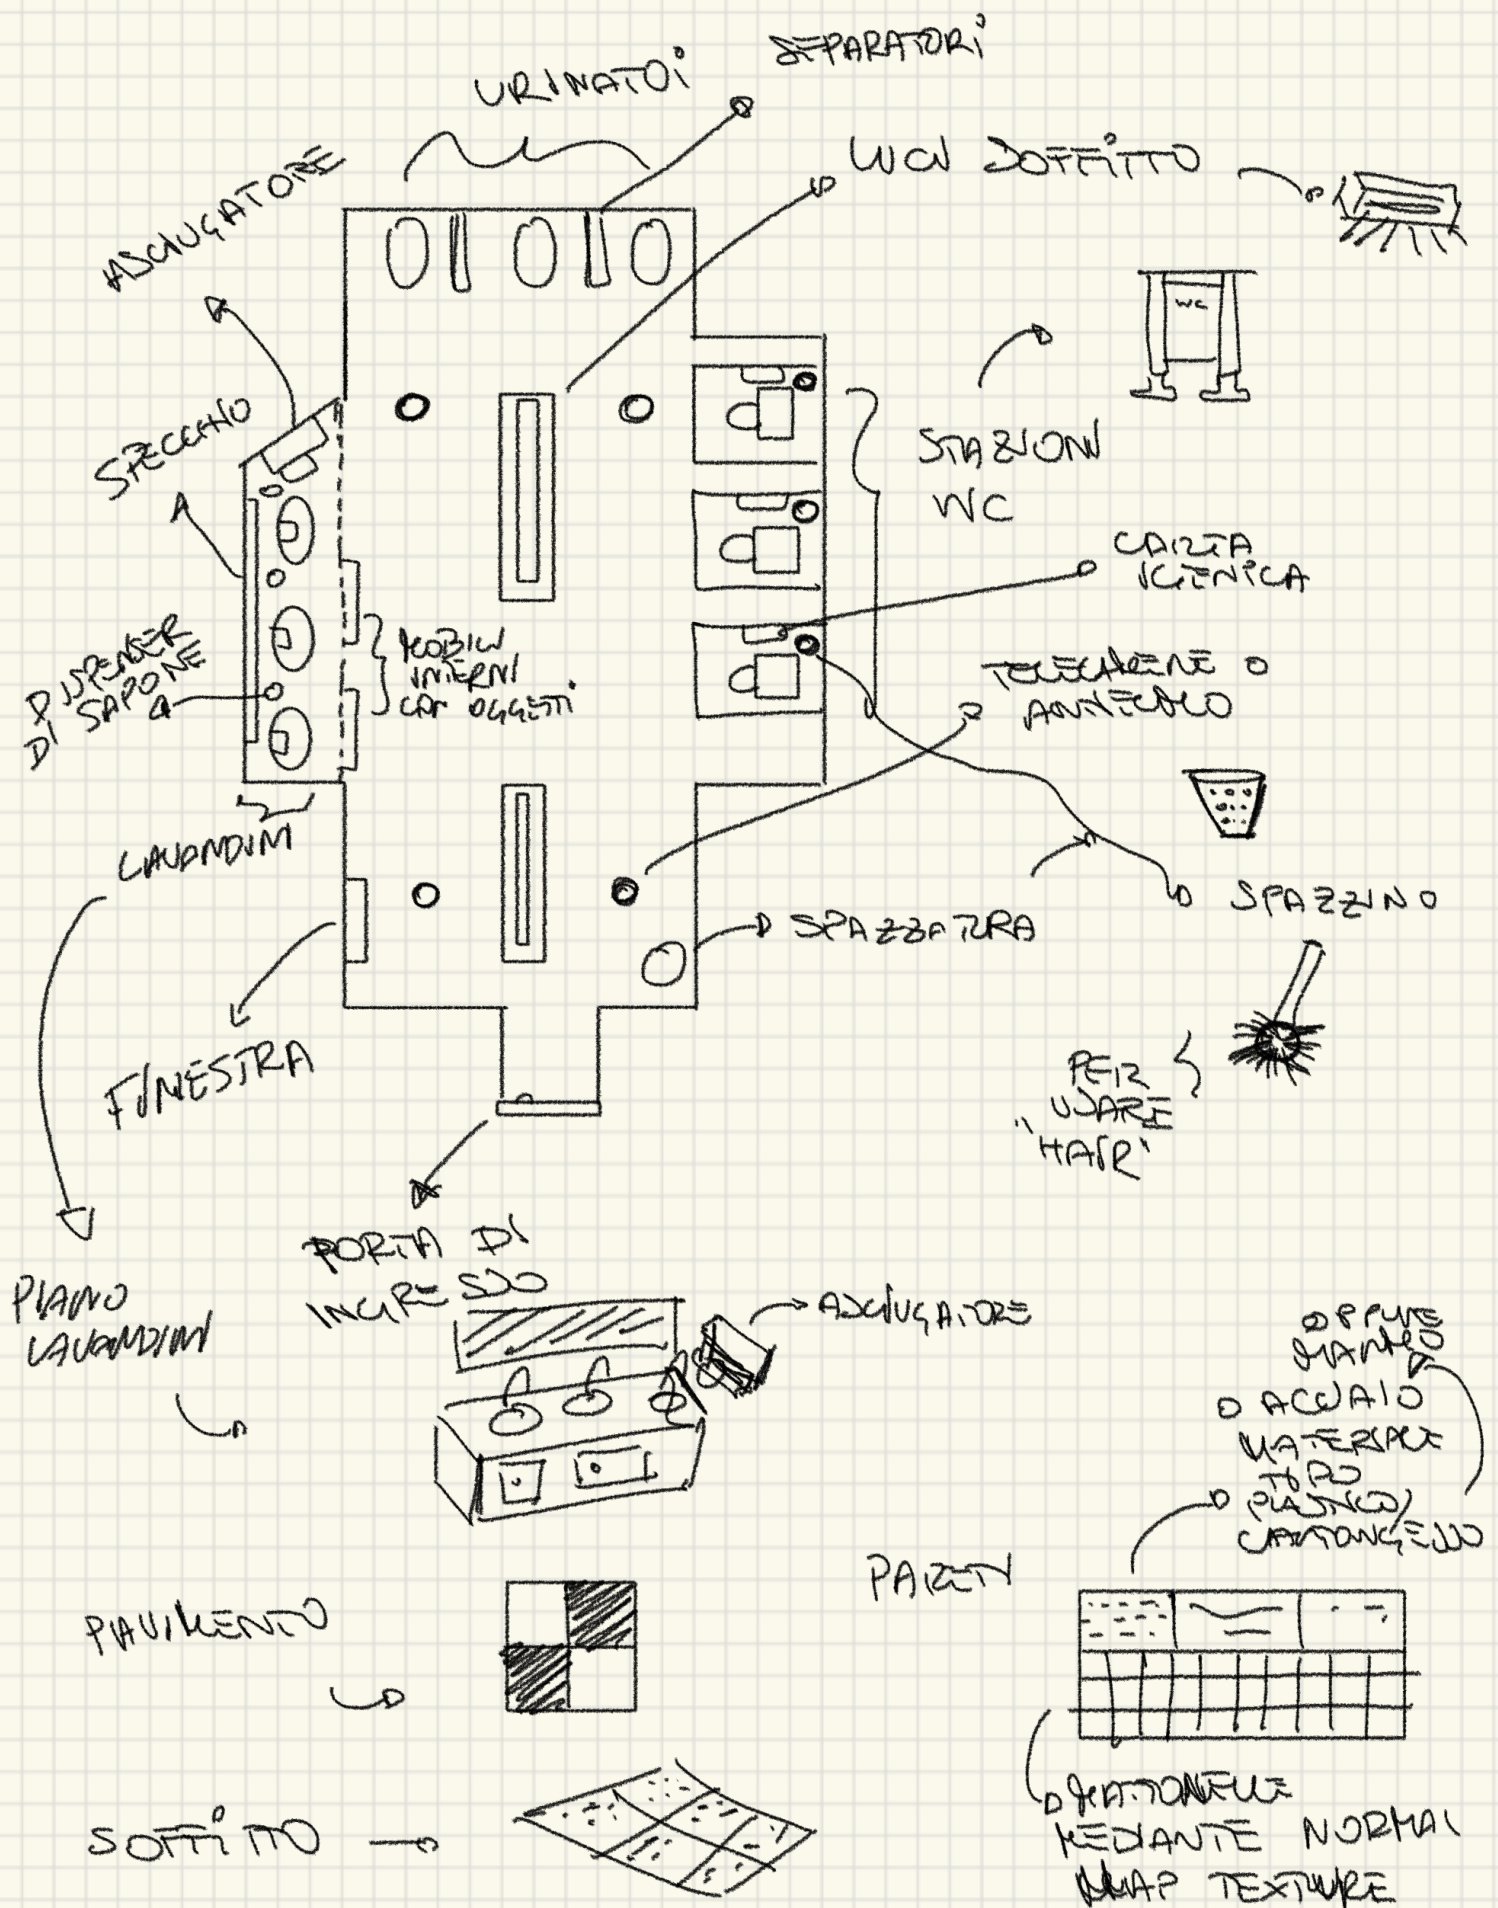 SEPARATORI
URINATOI
LUCI SOFFITTO
ASCIUGATORE
WC
SPECCHIO
STAZIONI
WC
CARTA
IGIENICA
DISPENSER
DI SAPONE
MOBILI
INTERNI
CAP OGGETTI
TELECAMERE O
ANNESSO
LAVANDINI
SPAZZINO
SPAZZATURA
FINESTRA
PER
USARE
"HAIR"
PORTA DI
INGRESSO
PIANO
LAVANDINI
ASCIUGATORE
OPPURE
MARMO
ACCIAIO
MATERIALE
TIPO
PLASTICO/
CARTONGESSO
PARETI
PAVIMENTO
SOFFITTO
MATTONELLE
MEDIANTE NORMAL
MAP TEXTURE